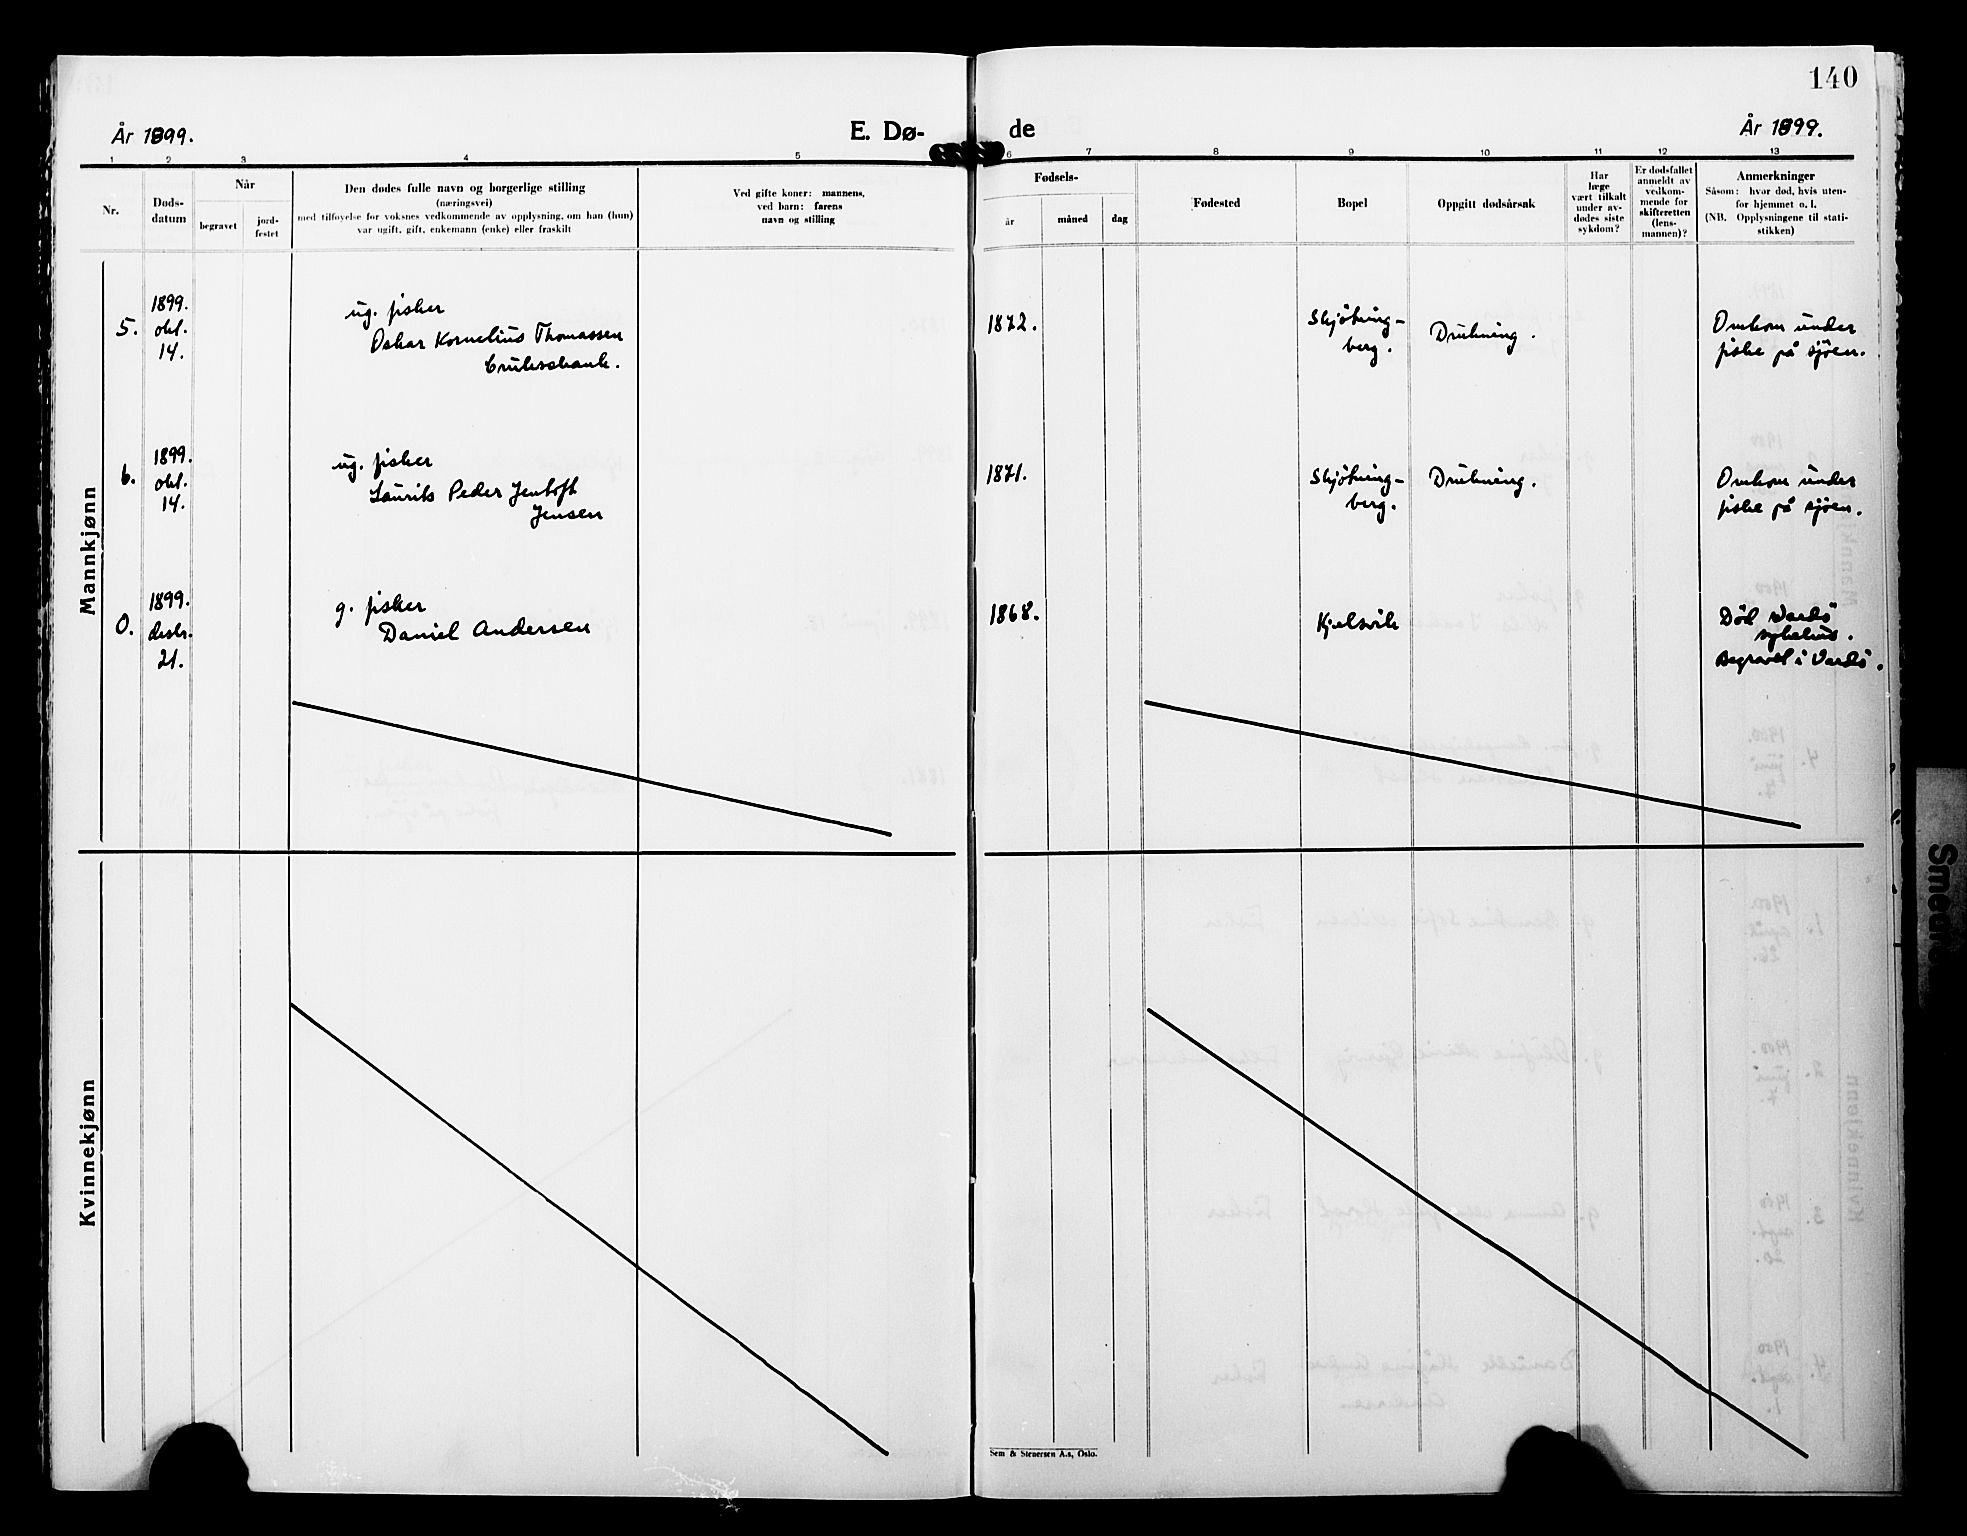 140
År 1899.
E. Dø-
de
År 1899.
1 2 3 4 5 6 7 8 9 10 11 12 13
Nr.
Døds-
datum
Når
begravet
jord-
festet
Den dødes fulle navn og borgerlige stilling
(næringsvei)
med tilføyelse for voksnes vedkommende av opplysning, om han (hun)
var ugift, gift, enkemann (enke) eller fraskilt
Ved gifte koner: mannens,
ved barn: farens
navn og stilling
Fødsels-
år
måned
dag
Fødested
Bopel
Oppgitt dødsårsak
Har
læge
vært tilkalt
under av-
dødes siste
sykdom?
Er dødsfallet
anmeldt av
vedkom-
mende for
skifteretten
(lens-
mannen)?
Anmerkninger
Såsom: hvor død, hvis uten-
for hjemmet o. l.
(NB. Opplysningene til stati-
stikken)
Mannkjønn
5.
1899.
okt.
14.
ug. fisker
Oskar Kornelius Thomassen
1872.
Skjötning-
berg.
Drukning.
Omkom under
fiske på sjöen.
6.
1899.
okt.
14.
ug. fisker
Laurits Peder Jentoft
Jensen
1871.
Skjötning-
berg.
Drukning.
Omkom under
fiske på sjöen.
0.
1899.
desbr.
21.
g. fisker
Daniel Andersen
1868.
Kjelsvik
Död Vardö
sykehus.
Begravet i Vardö.
Kvinnekjønn
Sem & Stenersen A.s, Oslo.